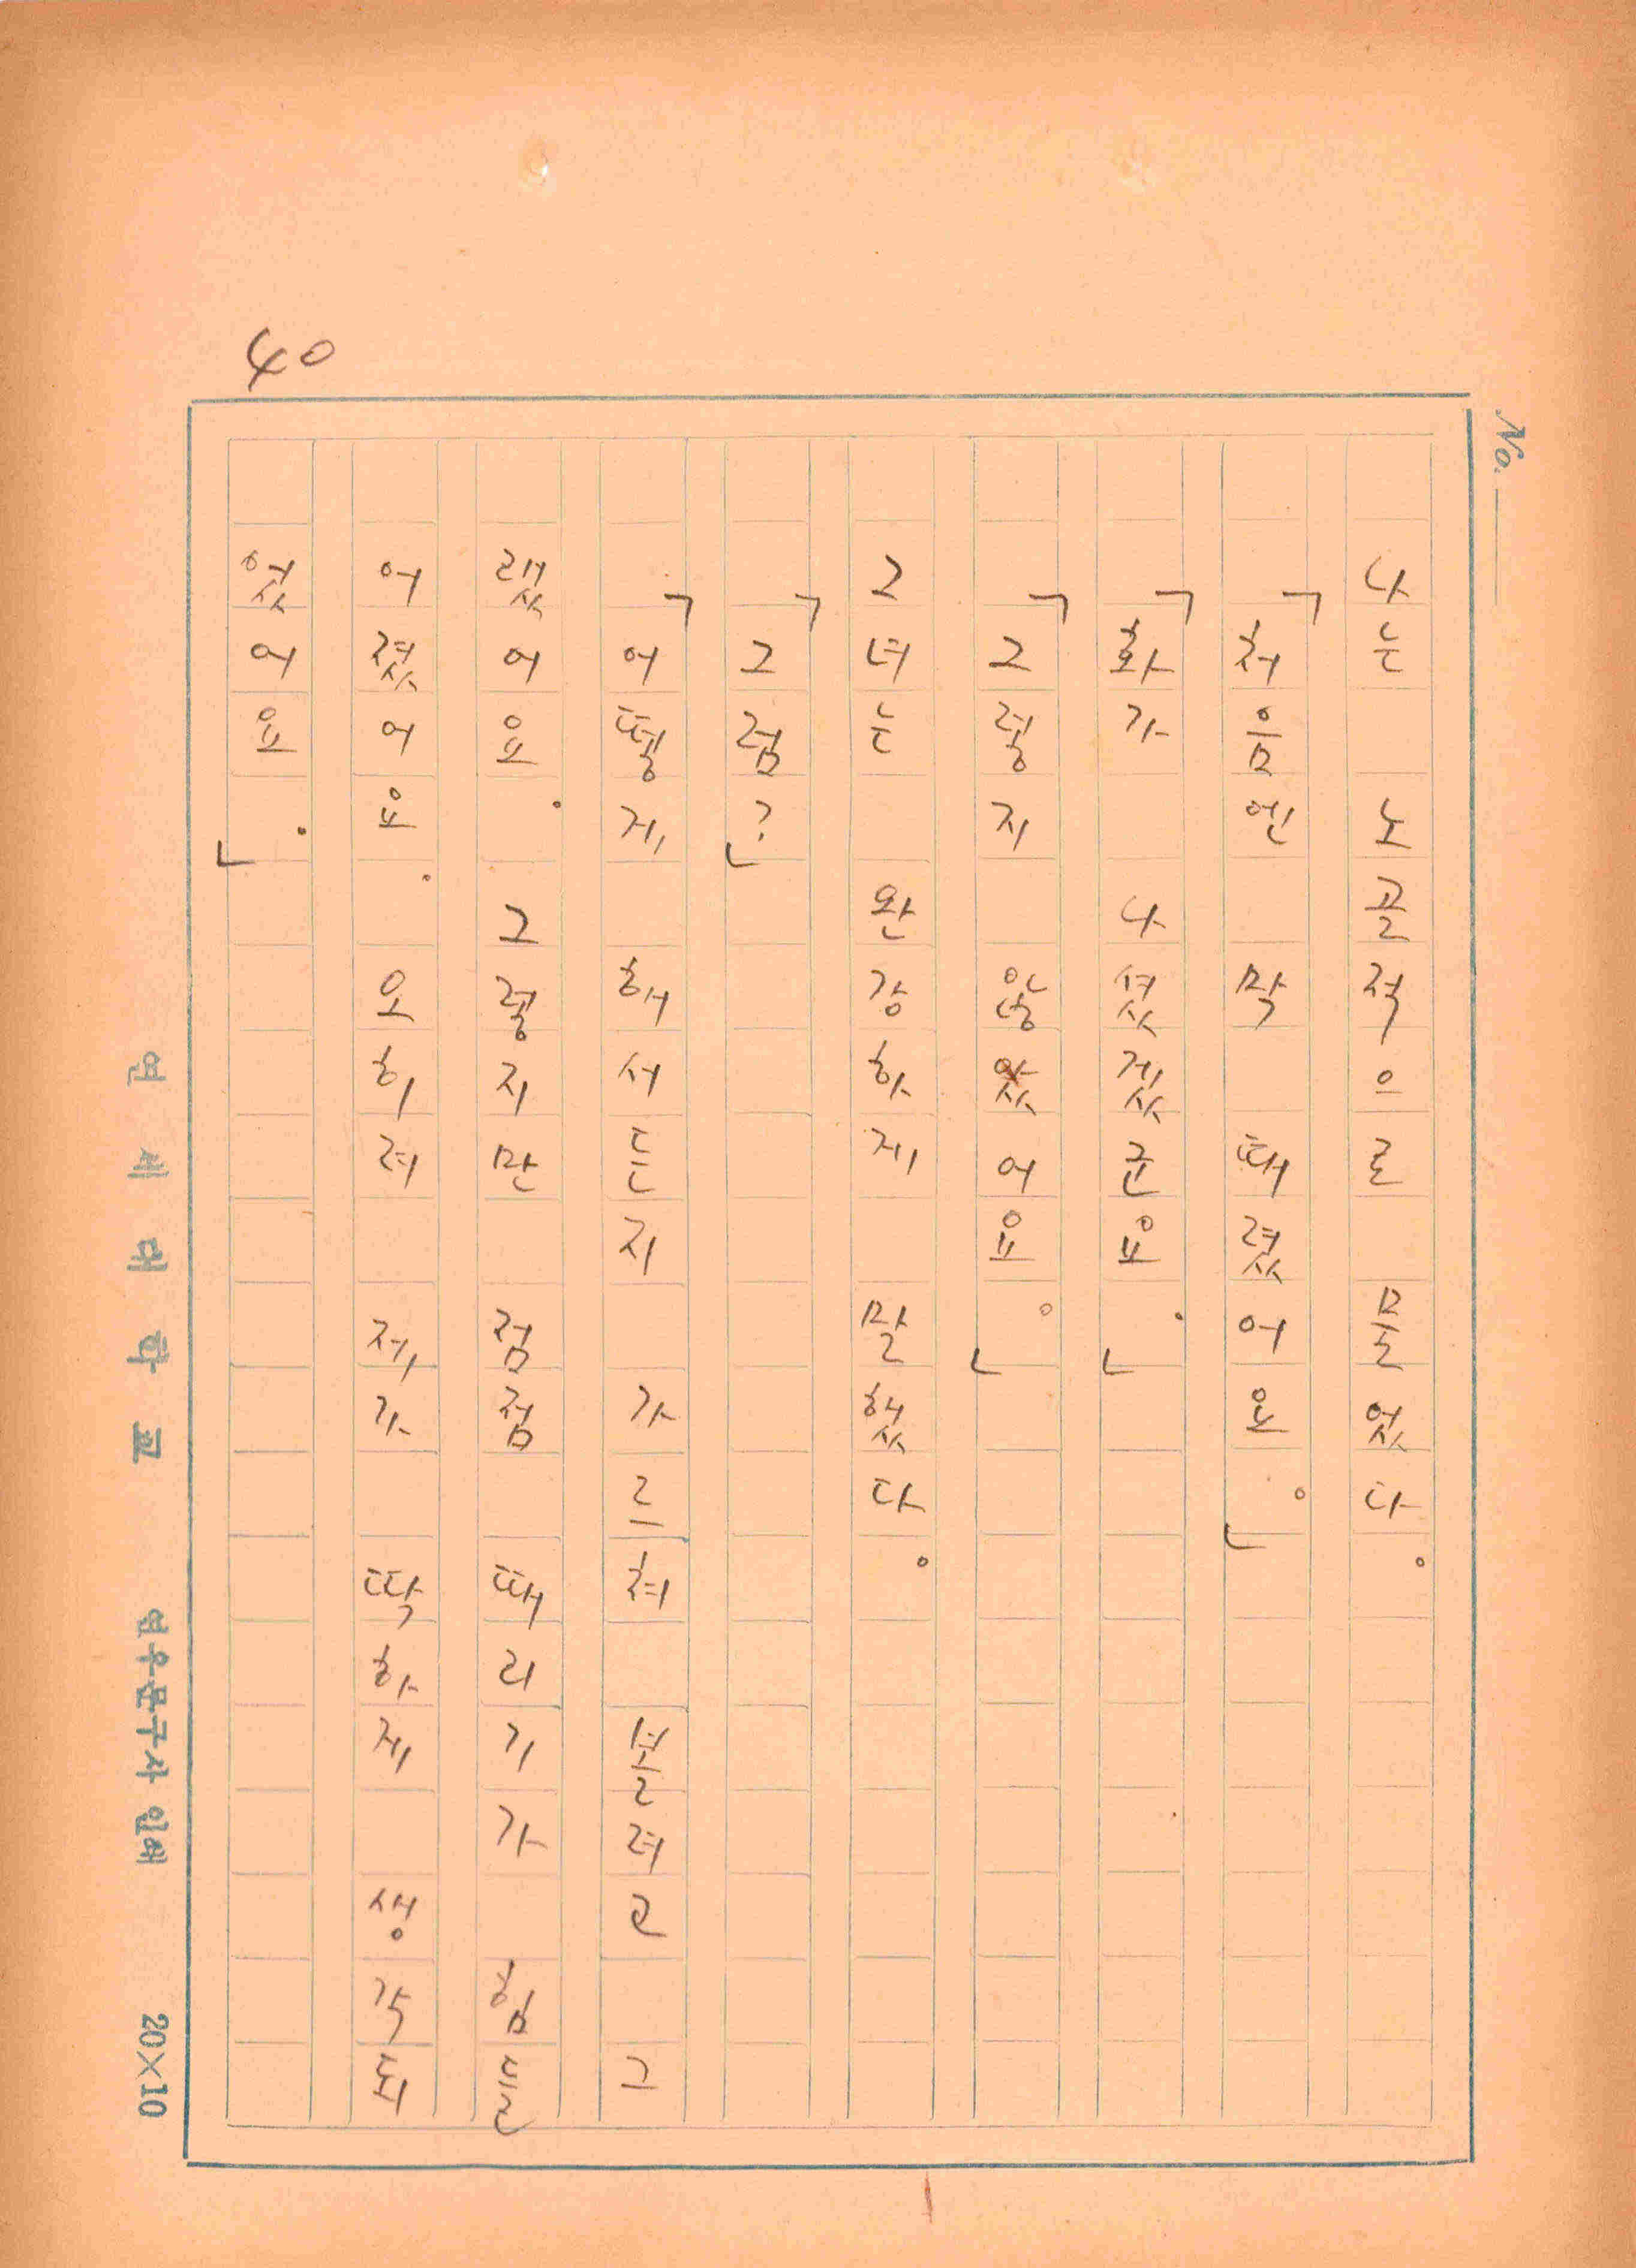 No.
나는 노골적으로 물었다。
「처음엔 막 때렸어요。」
「화가 나셨겠군요.」
「그렇지 않았어요。」
그녀는 완강하게 말했다。
「그럼?」
「어떻게 해서든지 가르쳐 볼려고 그
랬어요. 그렇지만 점점 때리기가 힘들
어졌어요. 오히려 제가 딱하게 생각되
었어요.」
40
연세대학교 연우문구사 인쇄 20×10